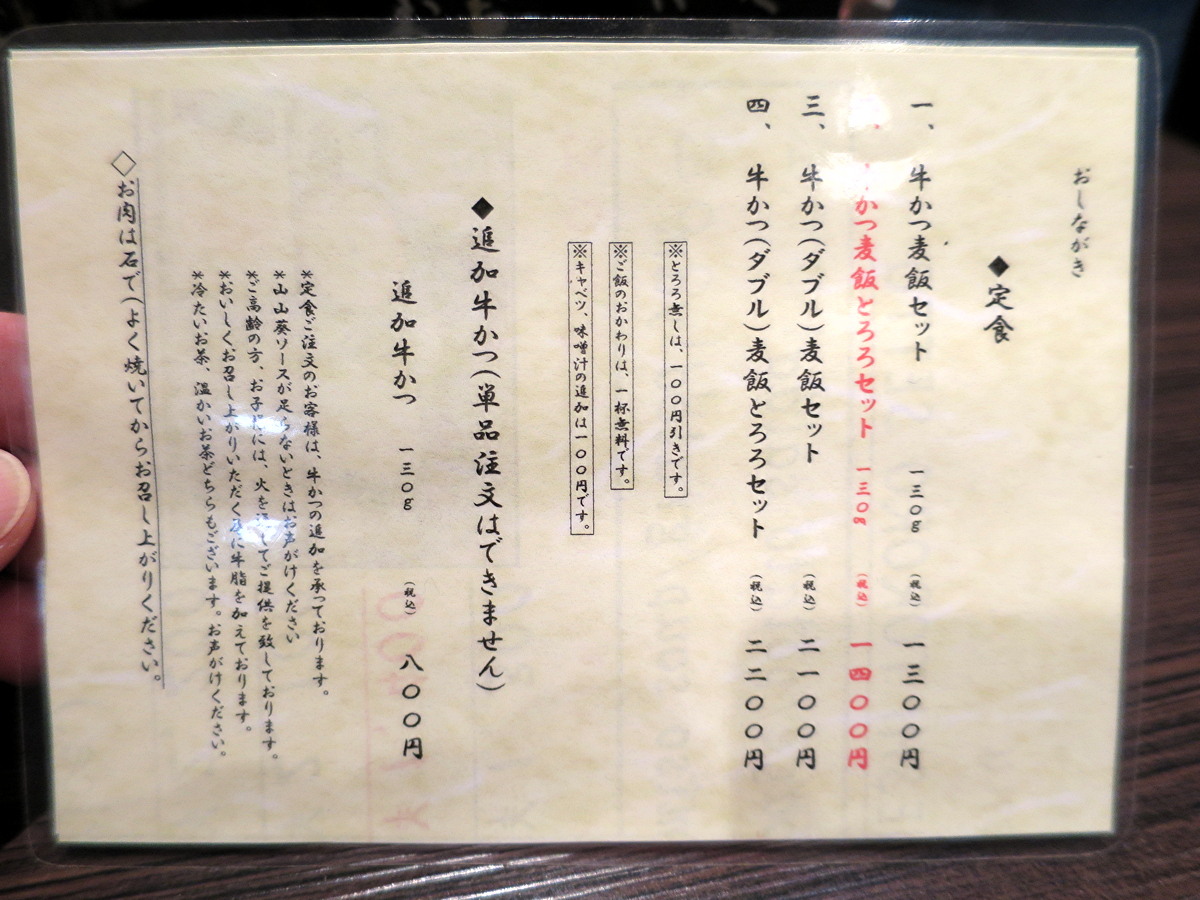 おしながき
◆定食
一、 牛かつ麦飯セット 一三〇g (税込) 一三〇〇円
かつ麦飯とろろセット 一三〇g (税込) 一四〇〇円
三、 牛かつ(ダブル)麦飯セット (税込) 二一〇〇円
四、 牛かつ(ダブル)麦飯とろろセット (税込) 二二〇〇円
※とろろ無しは、一〇〇円引きです。
※ご飯のおかわりは、一杯無料です。
※キャベツ、味噌汁の追加は一〇〇円です。
◆追加牛かつ(単品注文はできません)
追加牛かつ 一三〇g (税込) 八〇〇円
*定食ご注文のお客様は、牛かつの追加を承っております。
*山山葵ソースが足らないときはお声がけください
*ご高齢の方、お子には、火をてご提供を致しております。
*おいしくお召し上がりいただくに牛脂を加えております。
*冷たいお茶、温かいお茶どちらもございます。お声がけください。
◇お肉は石で(よく焼いてからお召し上がりください。